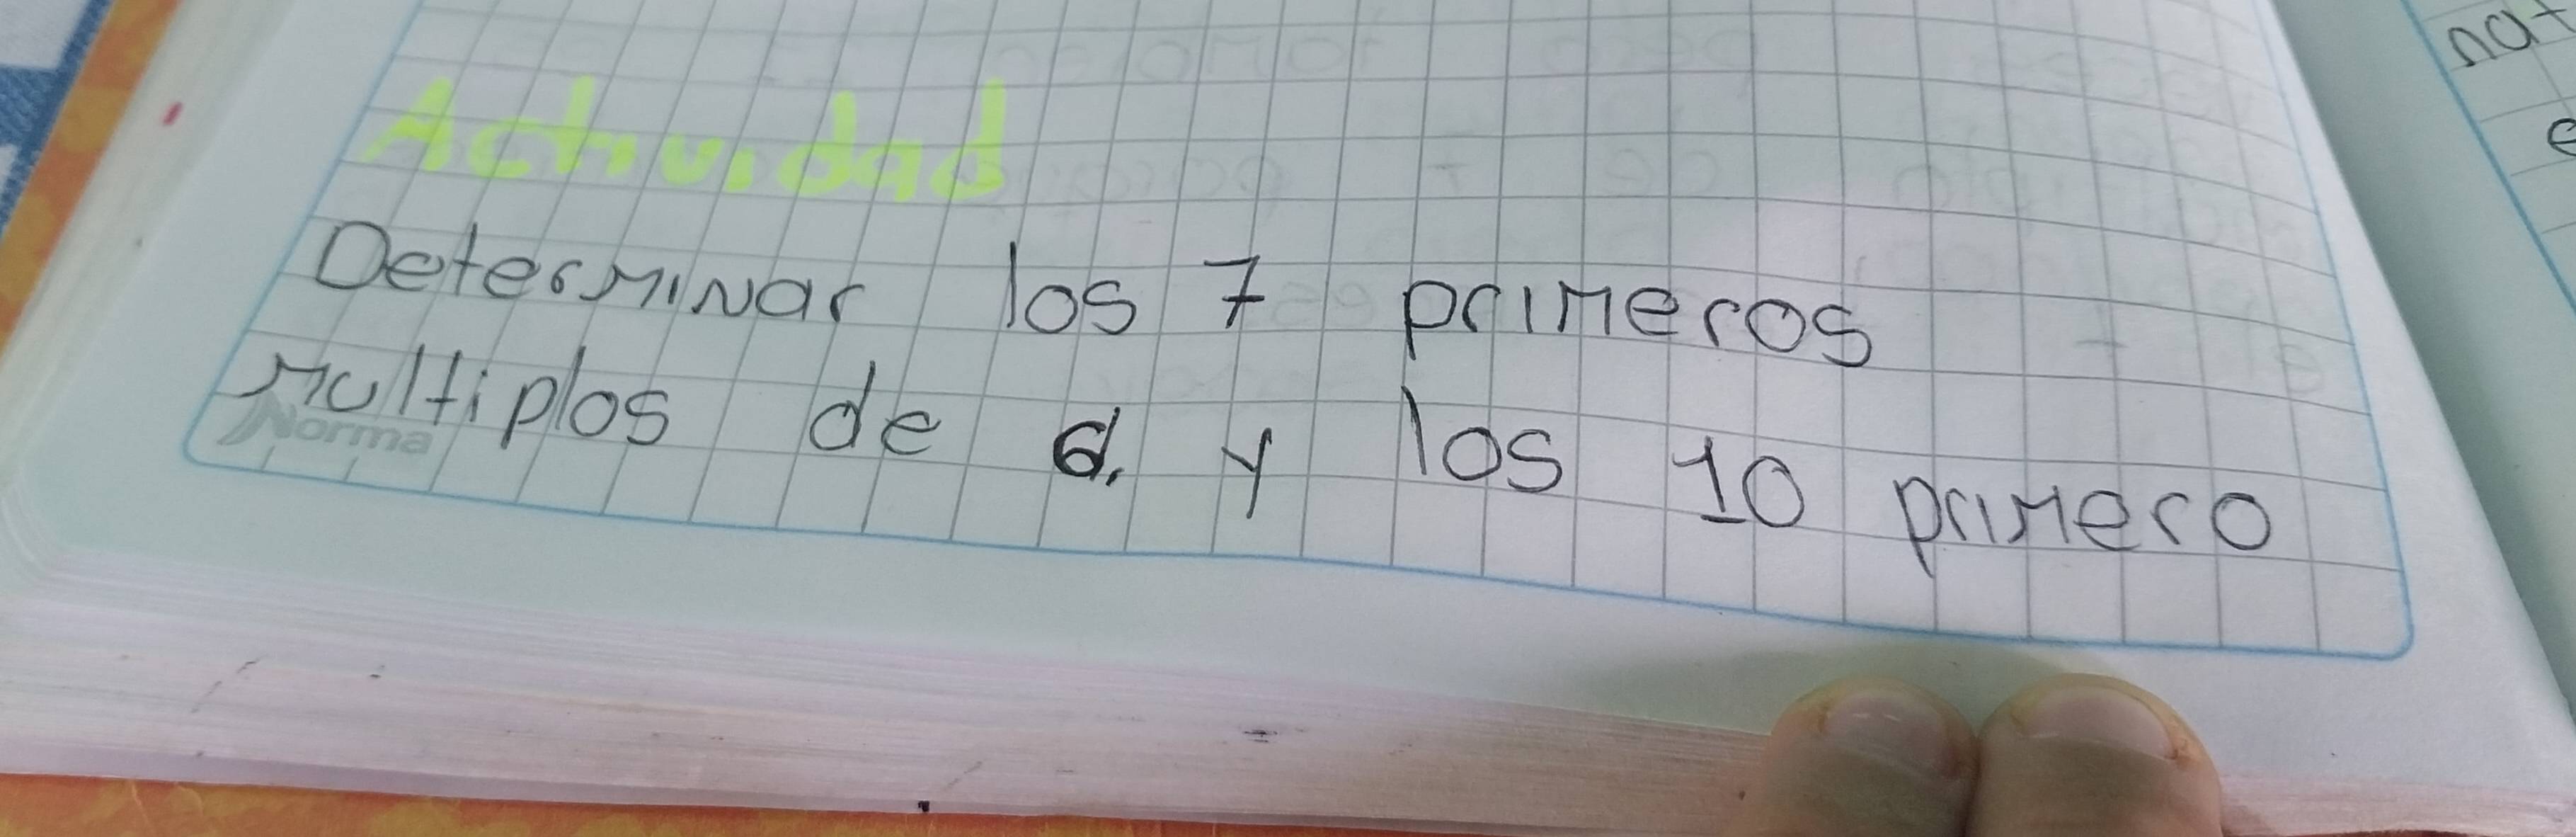 Actividad
Determinar los 7 primeros
multiplos de 6. y los 10 primero
Norma
nat
e